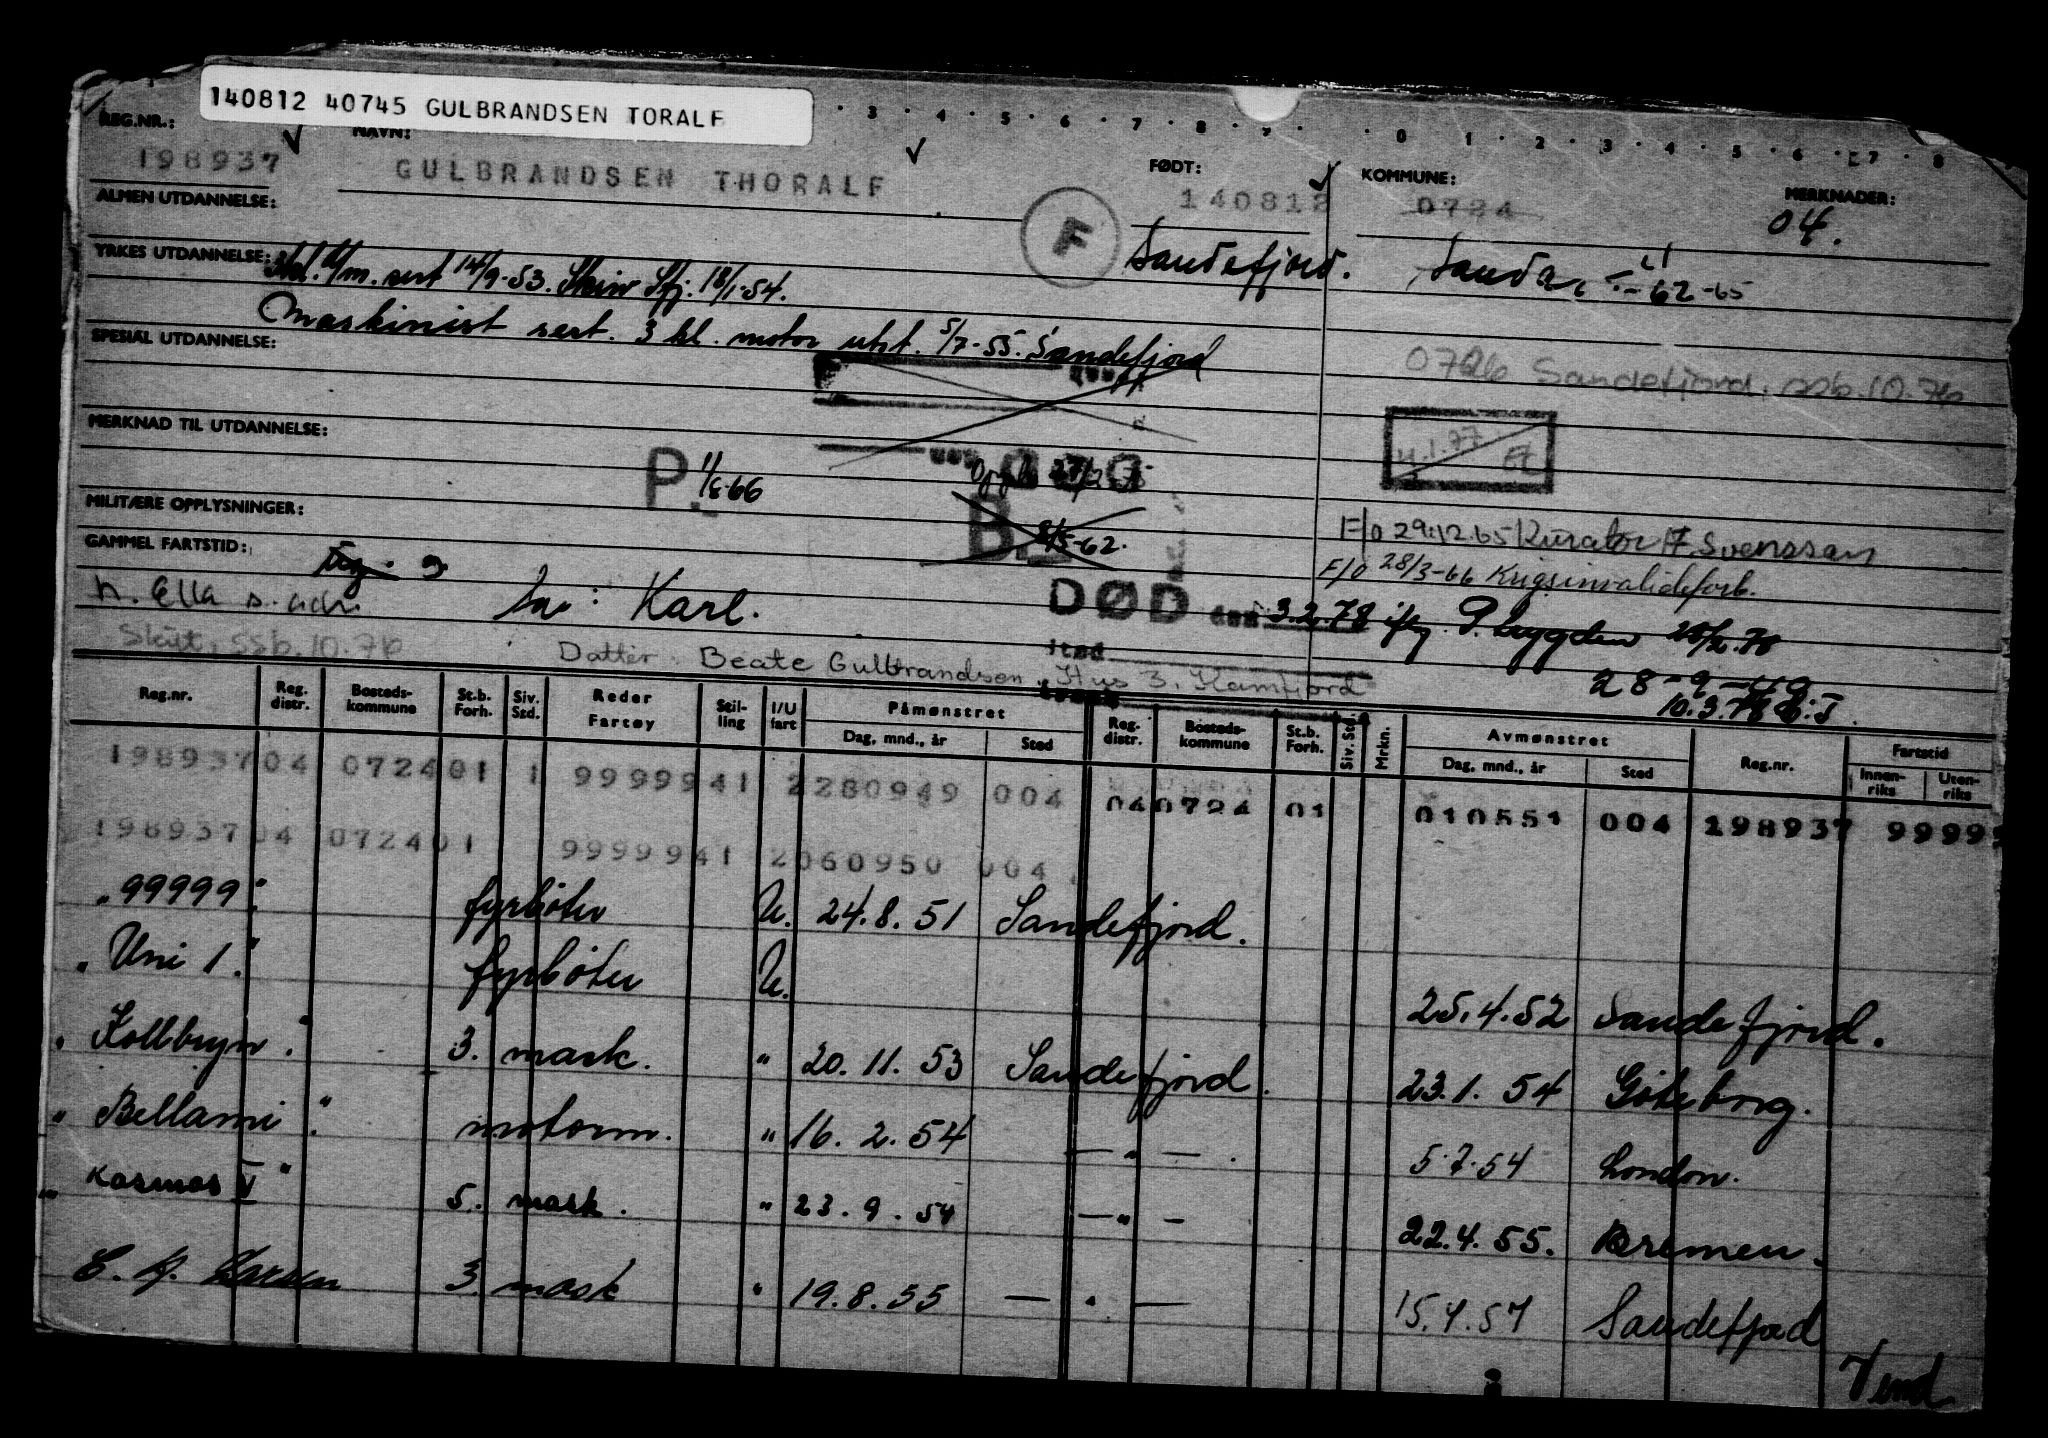 140812 40745 GULBRANDSEN TORALF
3 · 4 · 5 · 6 · 7 · 8 · 9 · · 0 · 1 · 2 · 3 · 4 · 5 · 6 · 7 · 8
REG.NR.: NAVN: FØDT: KOMMUNE: MERKNADER:
198937 GULBRANDSEN THORALF 140812 0724 04.
ALMEN UTDANNELSE: F Sandefjord. Sandar
62-65
YRKES UTDANNELSE: sert 14/9-53. Sfj. 18/1-54.
Maskinist sert. 3 kl. motor utst. 5/7-55. Sandefjord
SPESIAL UTDANNELSE:
Sandefjord, ssb.10.76
MERKNAD TIL UTDANNELSE:
4.1.77
P. 1/8-66
B 8/5-62.
MILITÆRE OPPLYSNINGER:
F/o 29.12.65 Kurator F. Svenssen
GAMMEL FARTSTID:
F/o 28/3-66 Krigsinvalideforb.
h. Ella s. adr. Far: Karl.
DØD den 3.2.78 ifg. P. byggden 28/2.78
Skilt, ssb.10.76 sted
Datter: Beate Gulbrandsen, Hus 3, Kamfjord
28-9-49
10.3.78
Reg.nr. Reg. distr. Bosteds-kommune St.b. Forh. Siv. Std. Reder Fartøy Stil-ling I/U fart Påmønstret Dag, mnd., år Sted Reg. distr. Bosteds-kommune St.b. Forh. Siv. St. Mrkn. Avmønstret Dag, mnd., år Sted Reg.nr. Fartstid Innen-riks Uten-riks
198937 04 0724 01 1 99999 41 2 280949 004 04 0724 01 010551 004 198937 9999
198937 04 0724 01 99999 41 2 060950 004
"99999" fyrbøter U. 24.8.51 Sandefjord.
"Uni 1." fyrbøter U. 25.4.52 Sandefjord.
"Kollbryn" 3. mask. " 20.11.53 Sandefjord. 23.1.54 Göteborg.
"Bellami" motorm. " 16.2.54 — " — . 5.7.54 London.
"Kosmos V" 5. mask. " 23.9.54 — " — 22.4.55. Bremen.
C. A. Larsen 3. mask " 19.8.55 — " — 15.4.57 Sandefjord
Vend